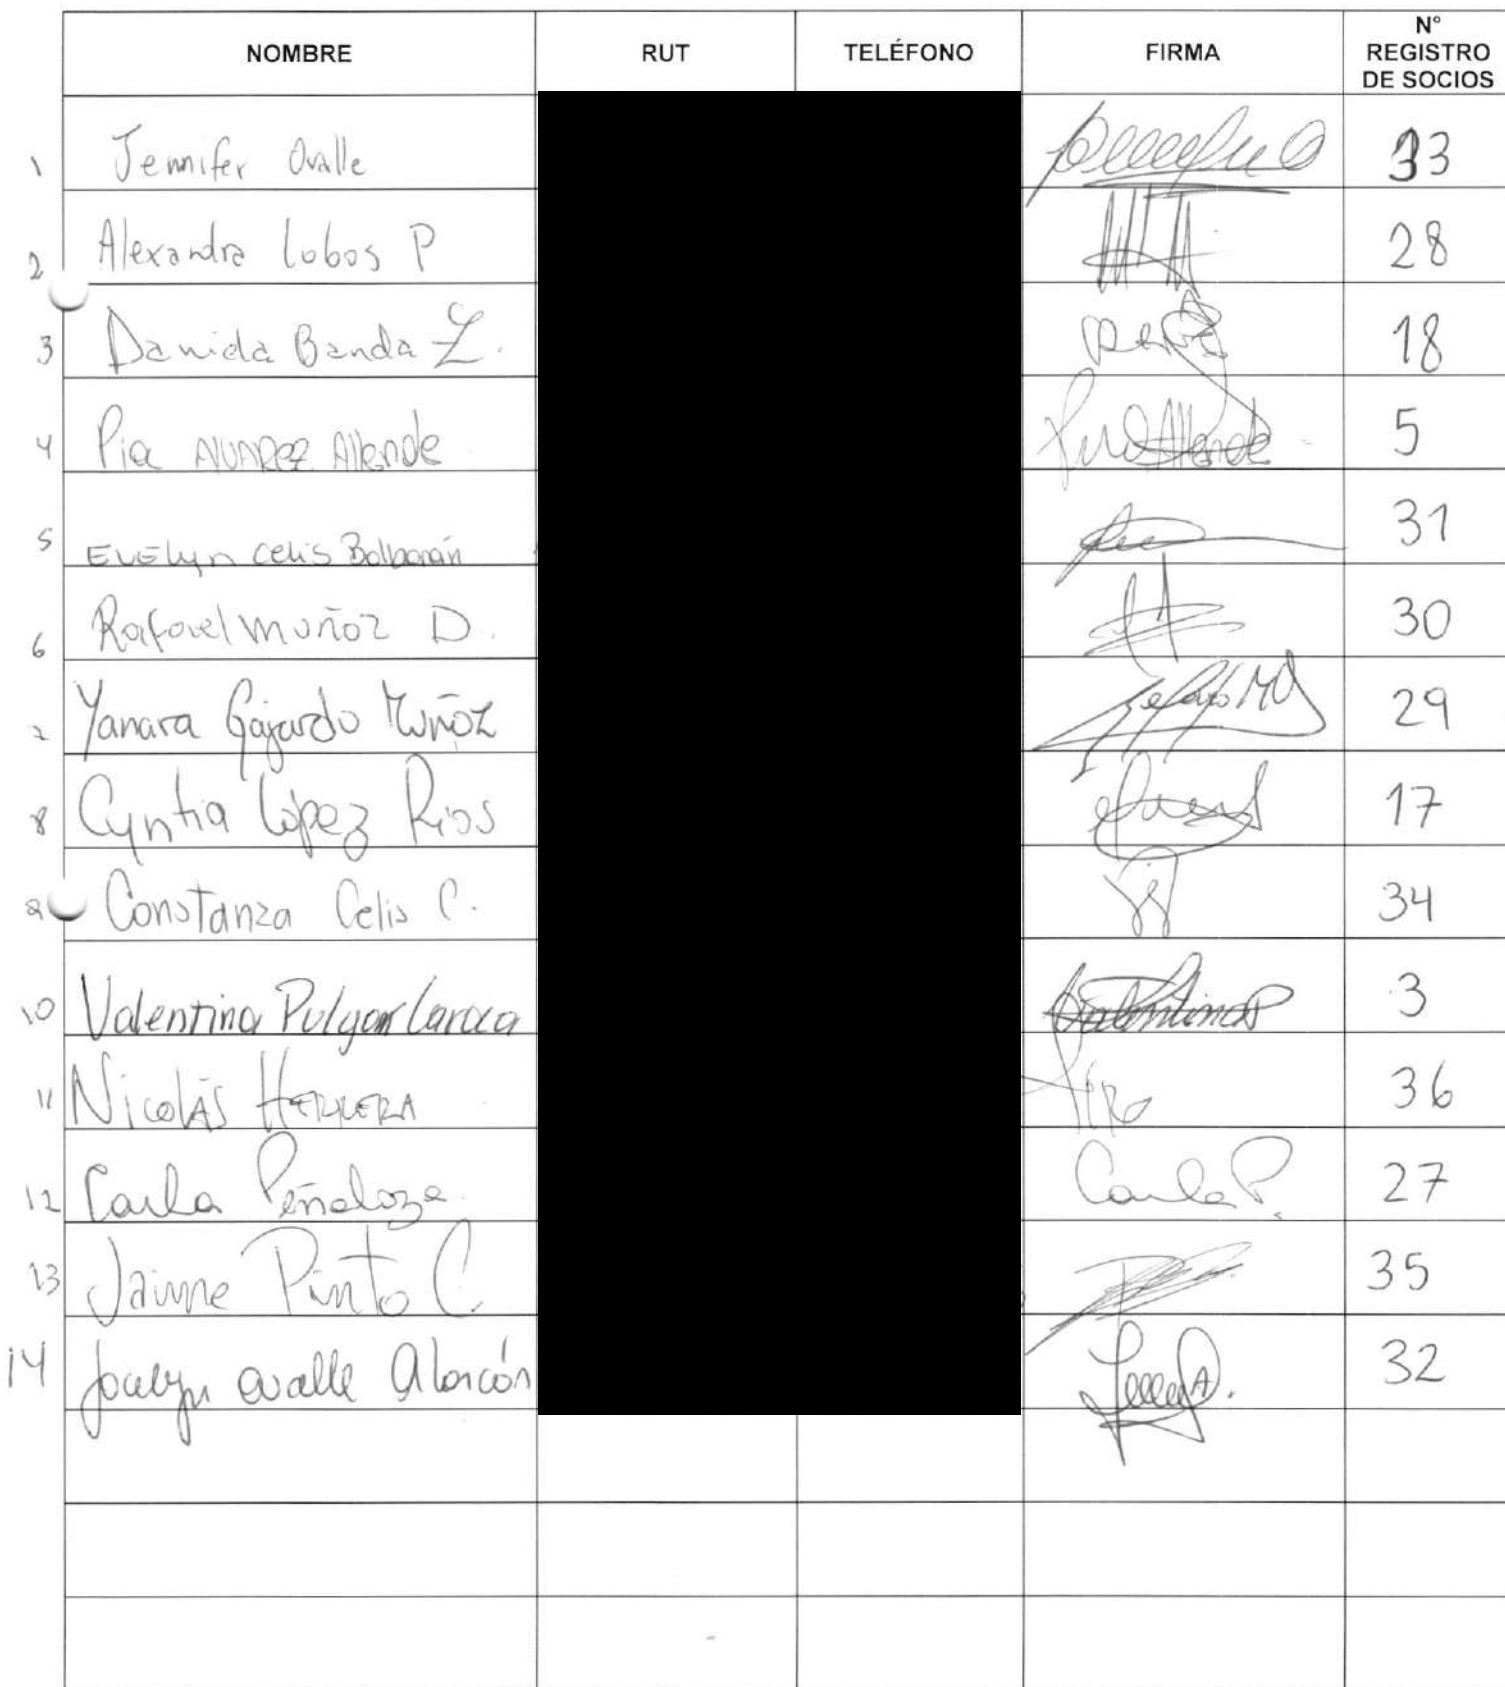 NOMBRE RUT TELÉFONO FIRMA N° REGISTRO DE SOCIOS
1 Jennifer Ovalle 33
2 Alexandra Lobos P 28
3 Daniela Banda Z. 18
4 Pia Alvarez Allende Allende 5
5 Evelyn Celis Balbarán 31
6 Rafael Muñoz D. 30
7 Yanara Gajardo Muñoz 29
8 Cyntia López Rios 17
9 Constanza Celis C. 34
10 Valentina Pulgar Valentina P 3
11 Nicolás Herrera 36
12 Carla Peñaloza Carla P. 27
13 Jaime Pinto C. 35
14 Jocelyn Ovalle Alarcón 32